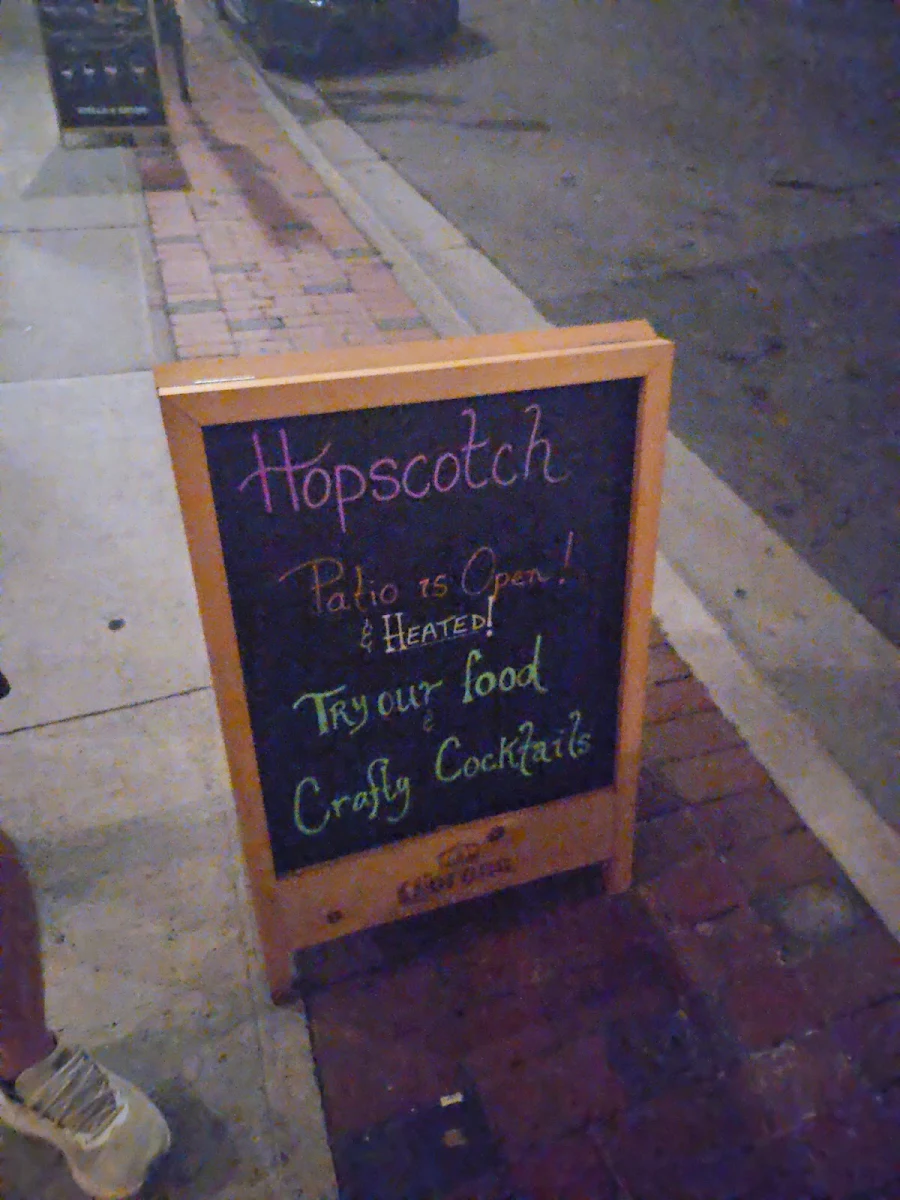 Hopscotch
Patio is Open!
& HEATED!
Try our food
&
Crafty Cocktails